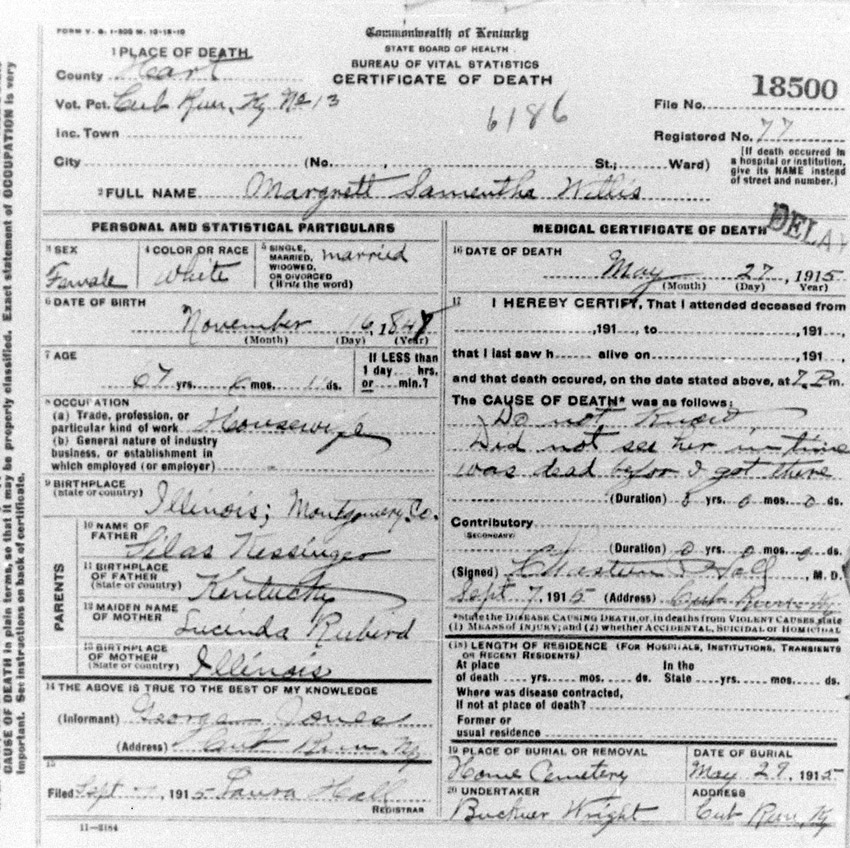 FORM V. S. 1-50M 10-18-10
Commonwealth of Kentucky
STATE BOARD OF HEALTH
BUREAU OF VITAL STATISTICS
CERTIFICATE OF DEATH
1 PLACE OF DEATH
County Hart
Vot. Pct. Cub Run, Ky No 13
Inc. Town
City (No. , St.; Ward)
6186
File No. 18500
Registered No. 77
[If death occurred in a hospital or institution, give its NAME instead of street and number.]
2 FULL NAME Margrett Samentha Willis
PERSONAL AND STATISTICAL PARTICULARS
3 SEX Female
4 COLOR OR RACE White
5 SINGLE, MARRIED, WIDOWED, OR DIVORCED (Write the word) married
6 DATE OF BIRTH
November 16, 1847
(Month) (Day) (Year)
7 AGE
67 yrs. 6 mos. 1 ds.
If LESS than 1 day hrs. or min.?
8 OCCUPATION
(a) Trade, profession, or particular kind of work Housewife
(b) General nature of industry business, or establishment in which employed (or employer)
9 BIRTHPLACE (State or country) Illinois; Montgomery Co.
PARENTS
10 NAME OF FATHER Silas Kessinger
11 BIRTHPLACE OF FATHER (State or country) Kentucky
12 MAIDEN NAME OF MOTHER Lucinda
13 BIRTHPLACE OF MOTHER (State or country) Illinois
14 THE ABOVE IS TRUE TO THE BEST OF MY KNOWLEDGE
(Informant) George Jones
(Address) Cub Run, Ky
15
Filed Sept 7, 1915 Laura Hall
REGISTRAR
11-3184
MEDICAL CERTIFICATE OF DEATH
DELAY
16 DATE OF DEATH
May 27, 1915
(Month) (Day) Year)
17 I HEREBY CERTIFY, That I attended deceased from
,191 , to ,191 ,
that I last saw h alive on ,191 ,
and that death occured, on the date stated above, at 7 P m.
The CAUSE OF DEATH* was as follows:
Do not Know,
Did not see her in time
was dead befor I got there
(Duration) 0 yrs. 0 mos. 0 ds.
Contributory
(SECONDARY)
(Duration) 0 yrs. 0 mos. 0 ds.
(Signed) Hall, M. D.
Sept 7, 1915 (Address) Cub Run Ky
*State the DISEASE CAUSING DEATH, or, in deaths from VIOLENT CAUSES, state
(1) MEANS OF INJURY; and (2) whether ACCIDENTAL, SUICIDAL or HOMICIDAL
(18) LENGTH OF RESIDENCE (FOR HOSPITALS, INSTITUTIONS, TRANSIENTS OR RECENT RESIDENTS)
At place of death yrs. mos. ds. In the State yrs. mos. ds.
Where was disease contracted,
If not at place of death?
Former or
usual residence
19 PLACE OF BURIAL OR REMOVAL
Home Cemetery
DATE OF BURIAL
May 29, 1915
20 UNDERTAKER
Buckner Wright
ADDRESS
Cub Run, Ky
CAUSE OF DEATH in plain terms, so that it may be properly classified. Exact statement of OCCUPATION is very
important. See instructions on back of certificate.